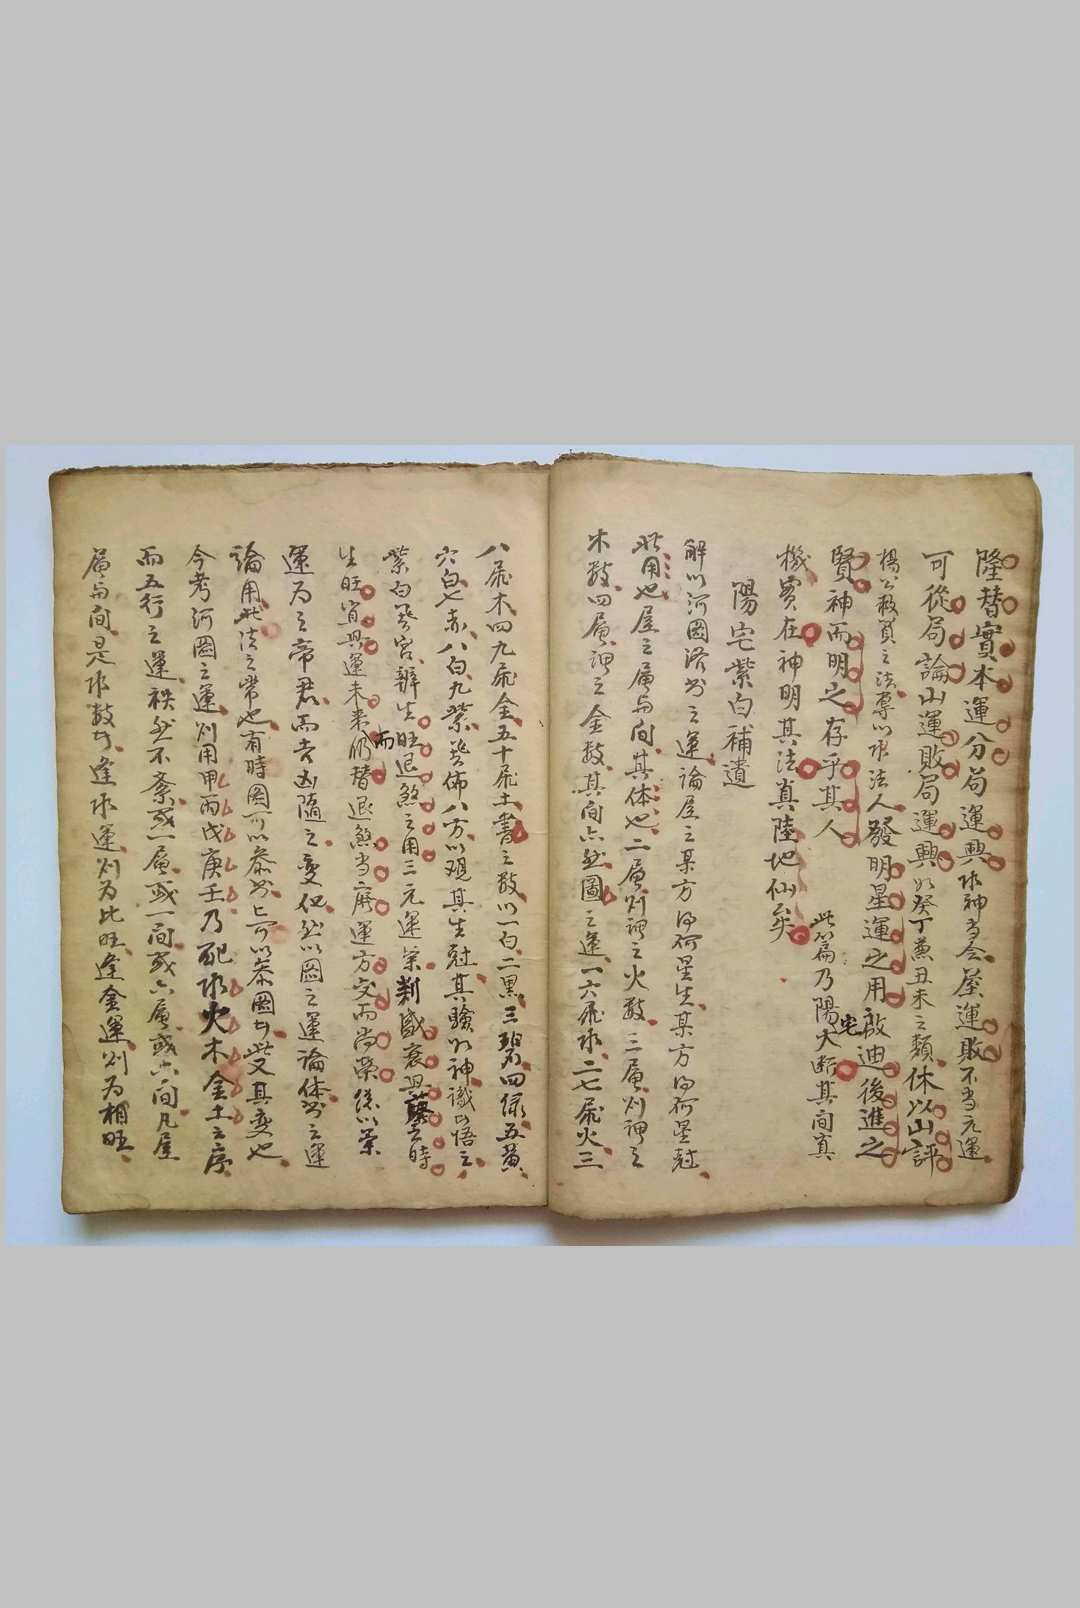 隆替實本運分局運興水神當令屋運敗不當元運
可從局論山運敗局運興如癸丁兼丑未之類休以山評
楊公救貧之法專以水法人發明星運之用啟迪後進之
賢神而明之存乎其人
此篇乃陽宅大斷其間真
機實在神明其法真陸地仙矣
陽宅紫白補遺
解以河圖洛书之運論屋之某方为何星生某方为何星尅
此用也屋之層与间其体也二層则谓之火数三層则谓之
木数四層谓之金数其间亦然圖之運一六属水二七属火三
八属木四九属金五十属土書之数以一白二黑三碧四绿五黄
六白七赤八白九紫分佈八方以观其生尅其驗如神識以悟之
紫白分宫辨生旺退煞之用三元運氣判盛衰興替之時
生旺宜興運未来而仍替退煞当廃運方交而尚榮總以氣
運为之帝君而吉凶隨之变但然以圖之運論体书之運
論用此法之常也有時圖可以参书书可以参圖此又其变也
今考河圖之運则用甲丙戊庚壬乃配水火木金土之序
而五行之運秩然不紊或一層或一间或六層或六间凡屋
層与间是水数者逢水運则为比旺逢金運则为相旺